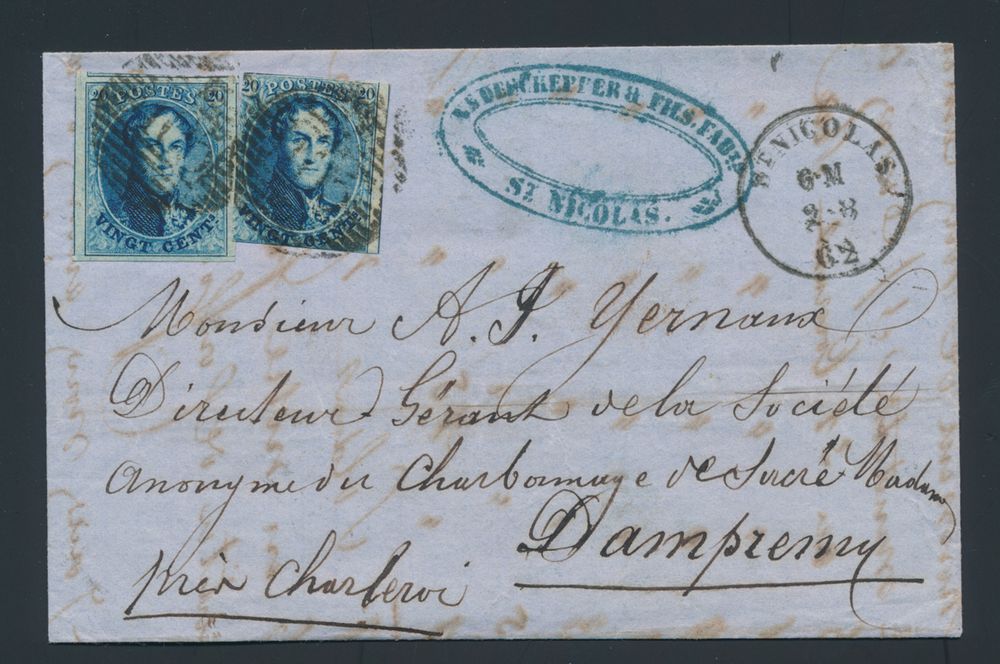 20 POSTES 20
VINGT CENTS
20 POSTES 20
VINGT CENTS
& FILS. FABTS
ST NICOLAS.
ST NICOLAS
6·M
62
Monsieur A. J. Yernaux
Directeur Gérant de la Société
anonyme du Charbonnage de Sacré Madame
Dampremy
près Charleroi